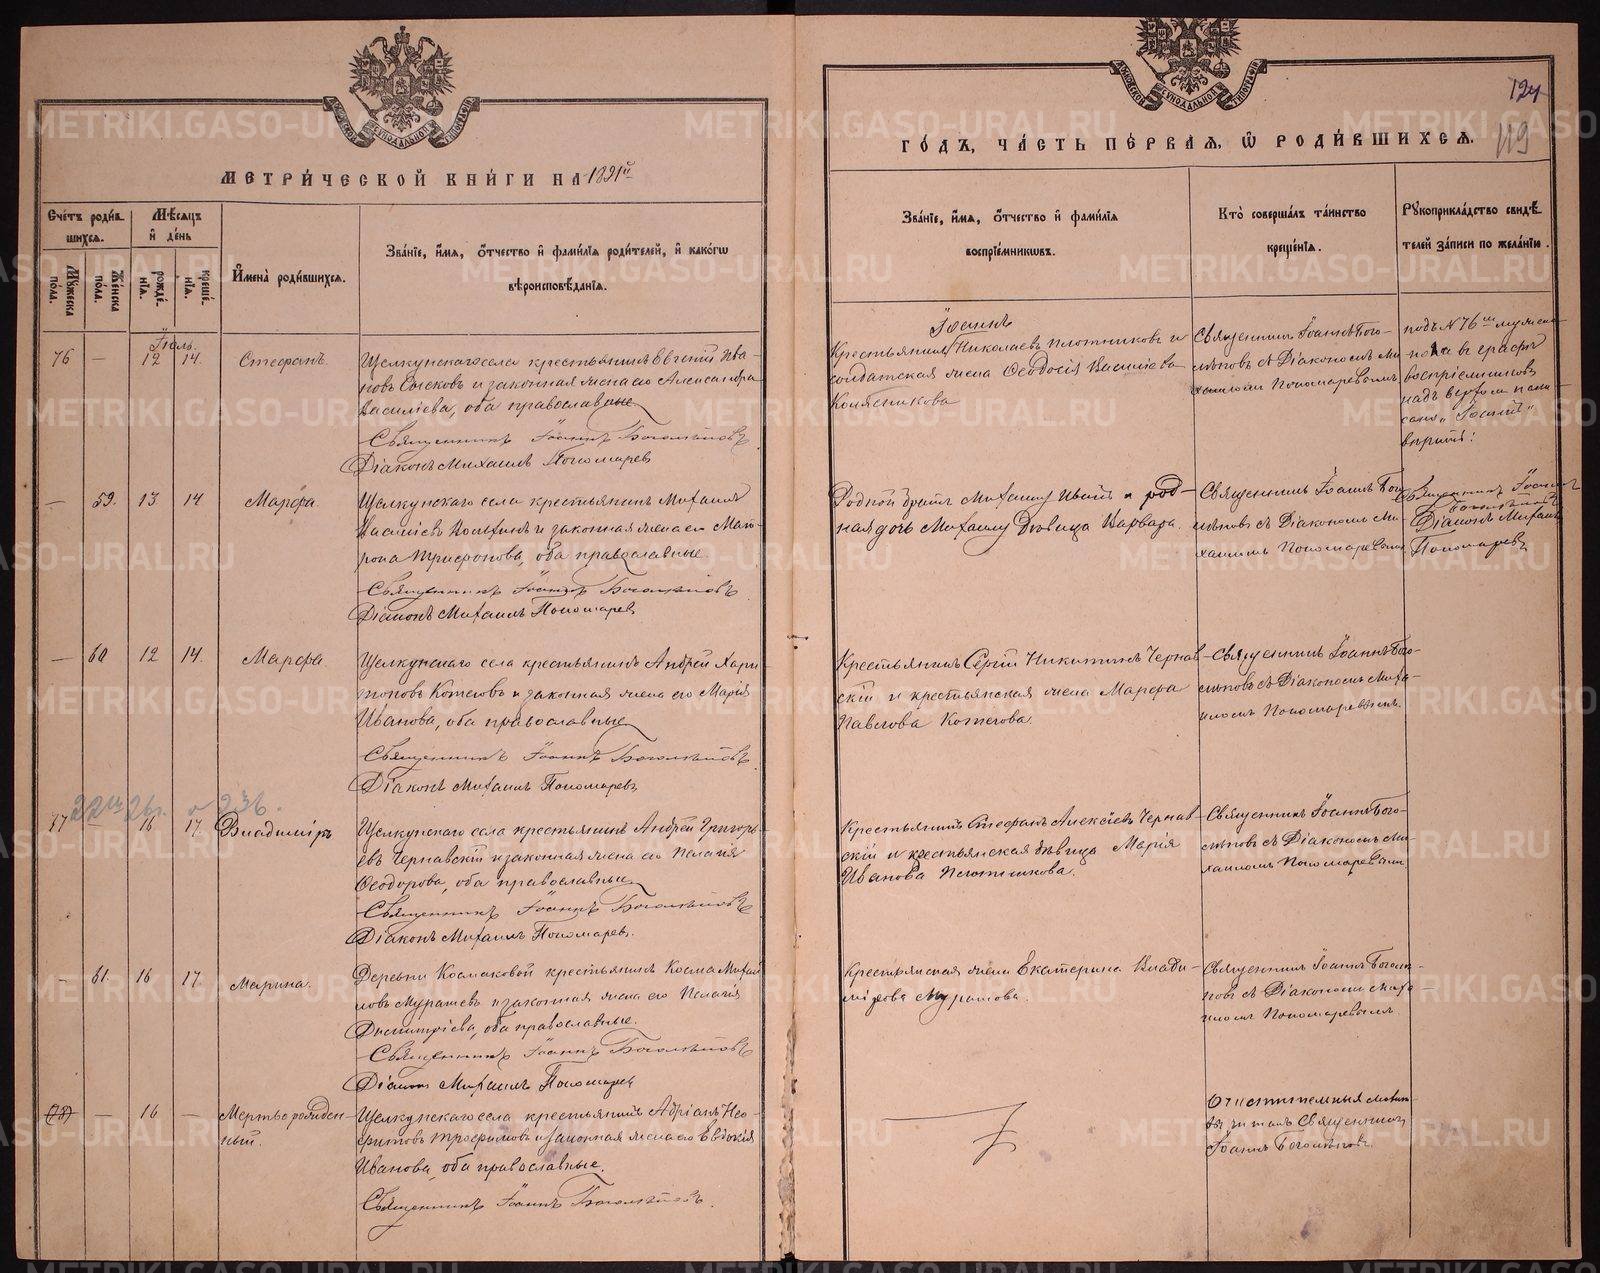 METRIKI.GASO-URAL.RU
МЕТРИ́ЧЕСКОЙ КНИ́ГИ НА 1891й
Сче́тъ роди́в-
шихся.
Му́жеска по́ла.
Же́нска по́ла.
Мѣ́сяцъ
и҆ де́нь
рожде́нїя.
креще́нїя.
И҆мена̀ роди́вшихся.
Зва́нїе, и҆́мя, ѻ҆́тчество и҆ фами́лїя роди́телей, и҆ како́гѡ
вѣроисповѣ́данїя.
Іюль.
76 — 12 14. Стефанъ.
Щелкунскаго села крестьянинъ Евгеній Ива-
новъ и законная жена его Александра
Василіева, оба православные
Священникъ Іоаннъ Боголѣповъ
Діаконъ Михаилъ Пономарев
— 59. 13 14 Марѳа.
Щелкунскаго села крестьянинъ Михаилъ
Василіевъ и законная жена его Мат-
рона Трифонова, оба православные.
Священникъ Іоаннъ Боголѣповъ
Діаконъ Михаилъ Пономарев
— 60 12 14. Марѳа.
Щелкунскаго села крестьянинъ Андрей Хари-
тоновъ и законная жена его Марія
Иванова, оба православные
Священникъ Іоаннъ Боголѣповъ
Діаконъ Михаилъ Пономарев
77 — 16 17. Владиміръ
Щелкунскаго села крестьянинъ Андрей Григорь-
евъ Чернавскій и законная жена его Пелагія
Ѳеодорова, оба православные
Священникъ Іоаннъ Боголѣповъ
Діаконъ Михаилъ Пономарев.
— 61. 16 17. Марина.
Деревни Космаковой крестьянинъ Косма Михай-
ловъ Мурашевъ и законная жена его Пелагія
Димитріева, оба православные.
Священникъ Іоаннъ Боголѣповъ
Діаконъ Михаилъ Пономарев
(78) — 16 — Мертворожден-
ный.
Щелкунскаго села крестьянинъ Адріанъ Нео-
фитовъ Трофимовъ и законная жена его Евдокія
Иванова, оба православные.
Священникъ Іоаннъ Боголѣповъ.
124
119
ГО́ДЪ, ЧА́СТЬ ПЕ́РВАЯ, Ѡ҆ РОДИ́ВШИХСЯ.
Зва́нїе, и҆́мя, ѻ҆́тчество и҆ фами́лїя
воспрїе́мникѡвъ.
Кто̀ соверша́лъ та́инство
креще́нїя.
Рꙋкоприкла́дство свидѣ́-
телей за́писи по жела́нїю.
Іоаннъ
Крестьянинъ Николаевъ Плотниковъ и
солдатская жена Ѳеодосія Васильева
Священникъ Іоаннъ Бого-
лѣповъ съ Діакономъ Ми-
хаиломъ Пономаревымъ
подъ N 76 мужска
пола въ графѣ
воспріемниковъ
надъ верхомъ напи-
сано „Іоаннъ"
вѣрить:
Родной братъ Михаилу Иванъ и род-
ная дочь Михаилу дѣвица Варвара.
Священникъ Іоаннъ Бого-
лѣповъ съ Діакономъ Ми-
хаиломъ Пономаревымъ
Священникъ Іоаннъ
Боголѣповъ
Діаконъ Михаилъ
Пономаревъ
Крестьянинъ Сергій Никитинъ Чернав-
скій и крестьянская жена Марѳа
Павлова
Священникъ Іоаннъ Бого-
лѣповъ съ Діакономъ Миха-
иломъ Пономаревымъ.
Крестьянинъ Стефанъ Алексіевъ Чернав-
скій и крестьянская дѣвица Марія
Иванова Плотникова.
Священникъ Іоаннъ Бого-
лѣповъ съ Діакономъ Ми-
хаиломъ Пономаревымъ
Крестьянская жена Екатерина Влади-
мірова Мурашова.
Священникъ Іоаннъ Боголѣ-
повъ съ Діакономъ Миха-
иломъ Пономаревымъ.
Очистительныя молит-
вы читалъ Священникъ
Іоаннъ Боголѣповъ.